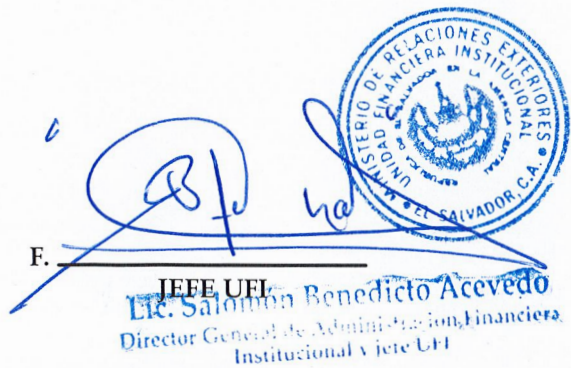 MINISTERIO DE RELACIONES EXTERIORES
UNIDAD FINANCIERA INSTITUCIONAL
REPUBLICA DE EL SALVADOR EN LA AMERICA CENTRAL
EL SALVADOR, C.A.
F.
JEFE UFI
Lic. Salomón Benedicto Acevedo
Director General de Administracion Financiera
Institucional y jefe UFI